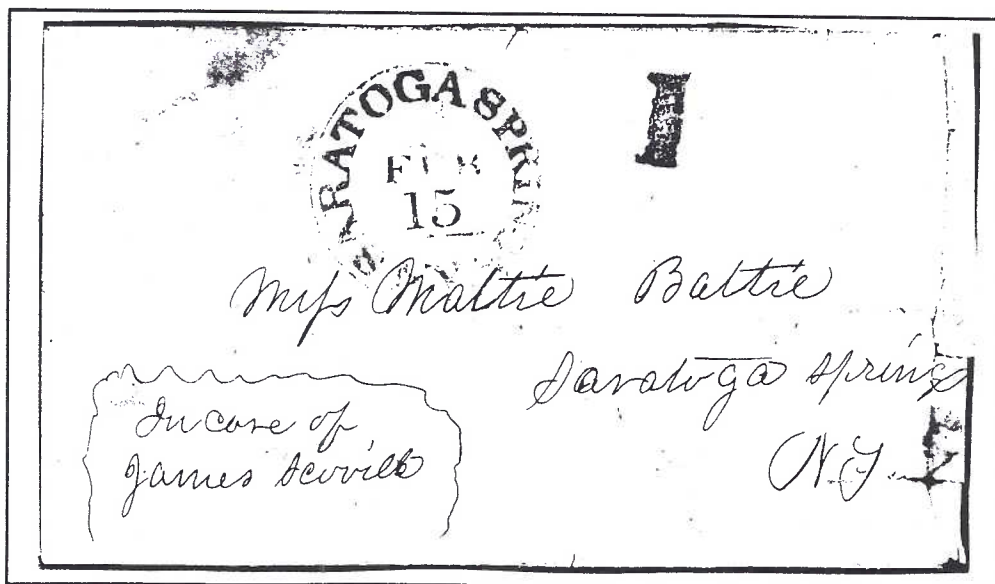 SARATOGA SPRING
FEB
15
I
Miss Mattie Battie
Saratoga Springs
N.Y.
In care of
James Scovill